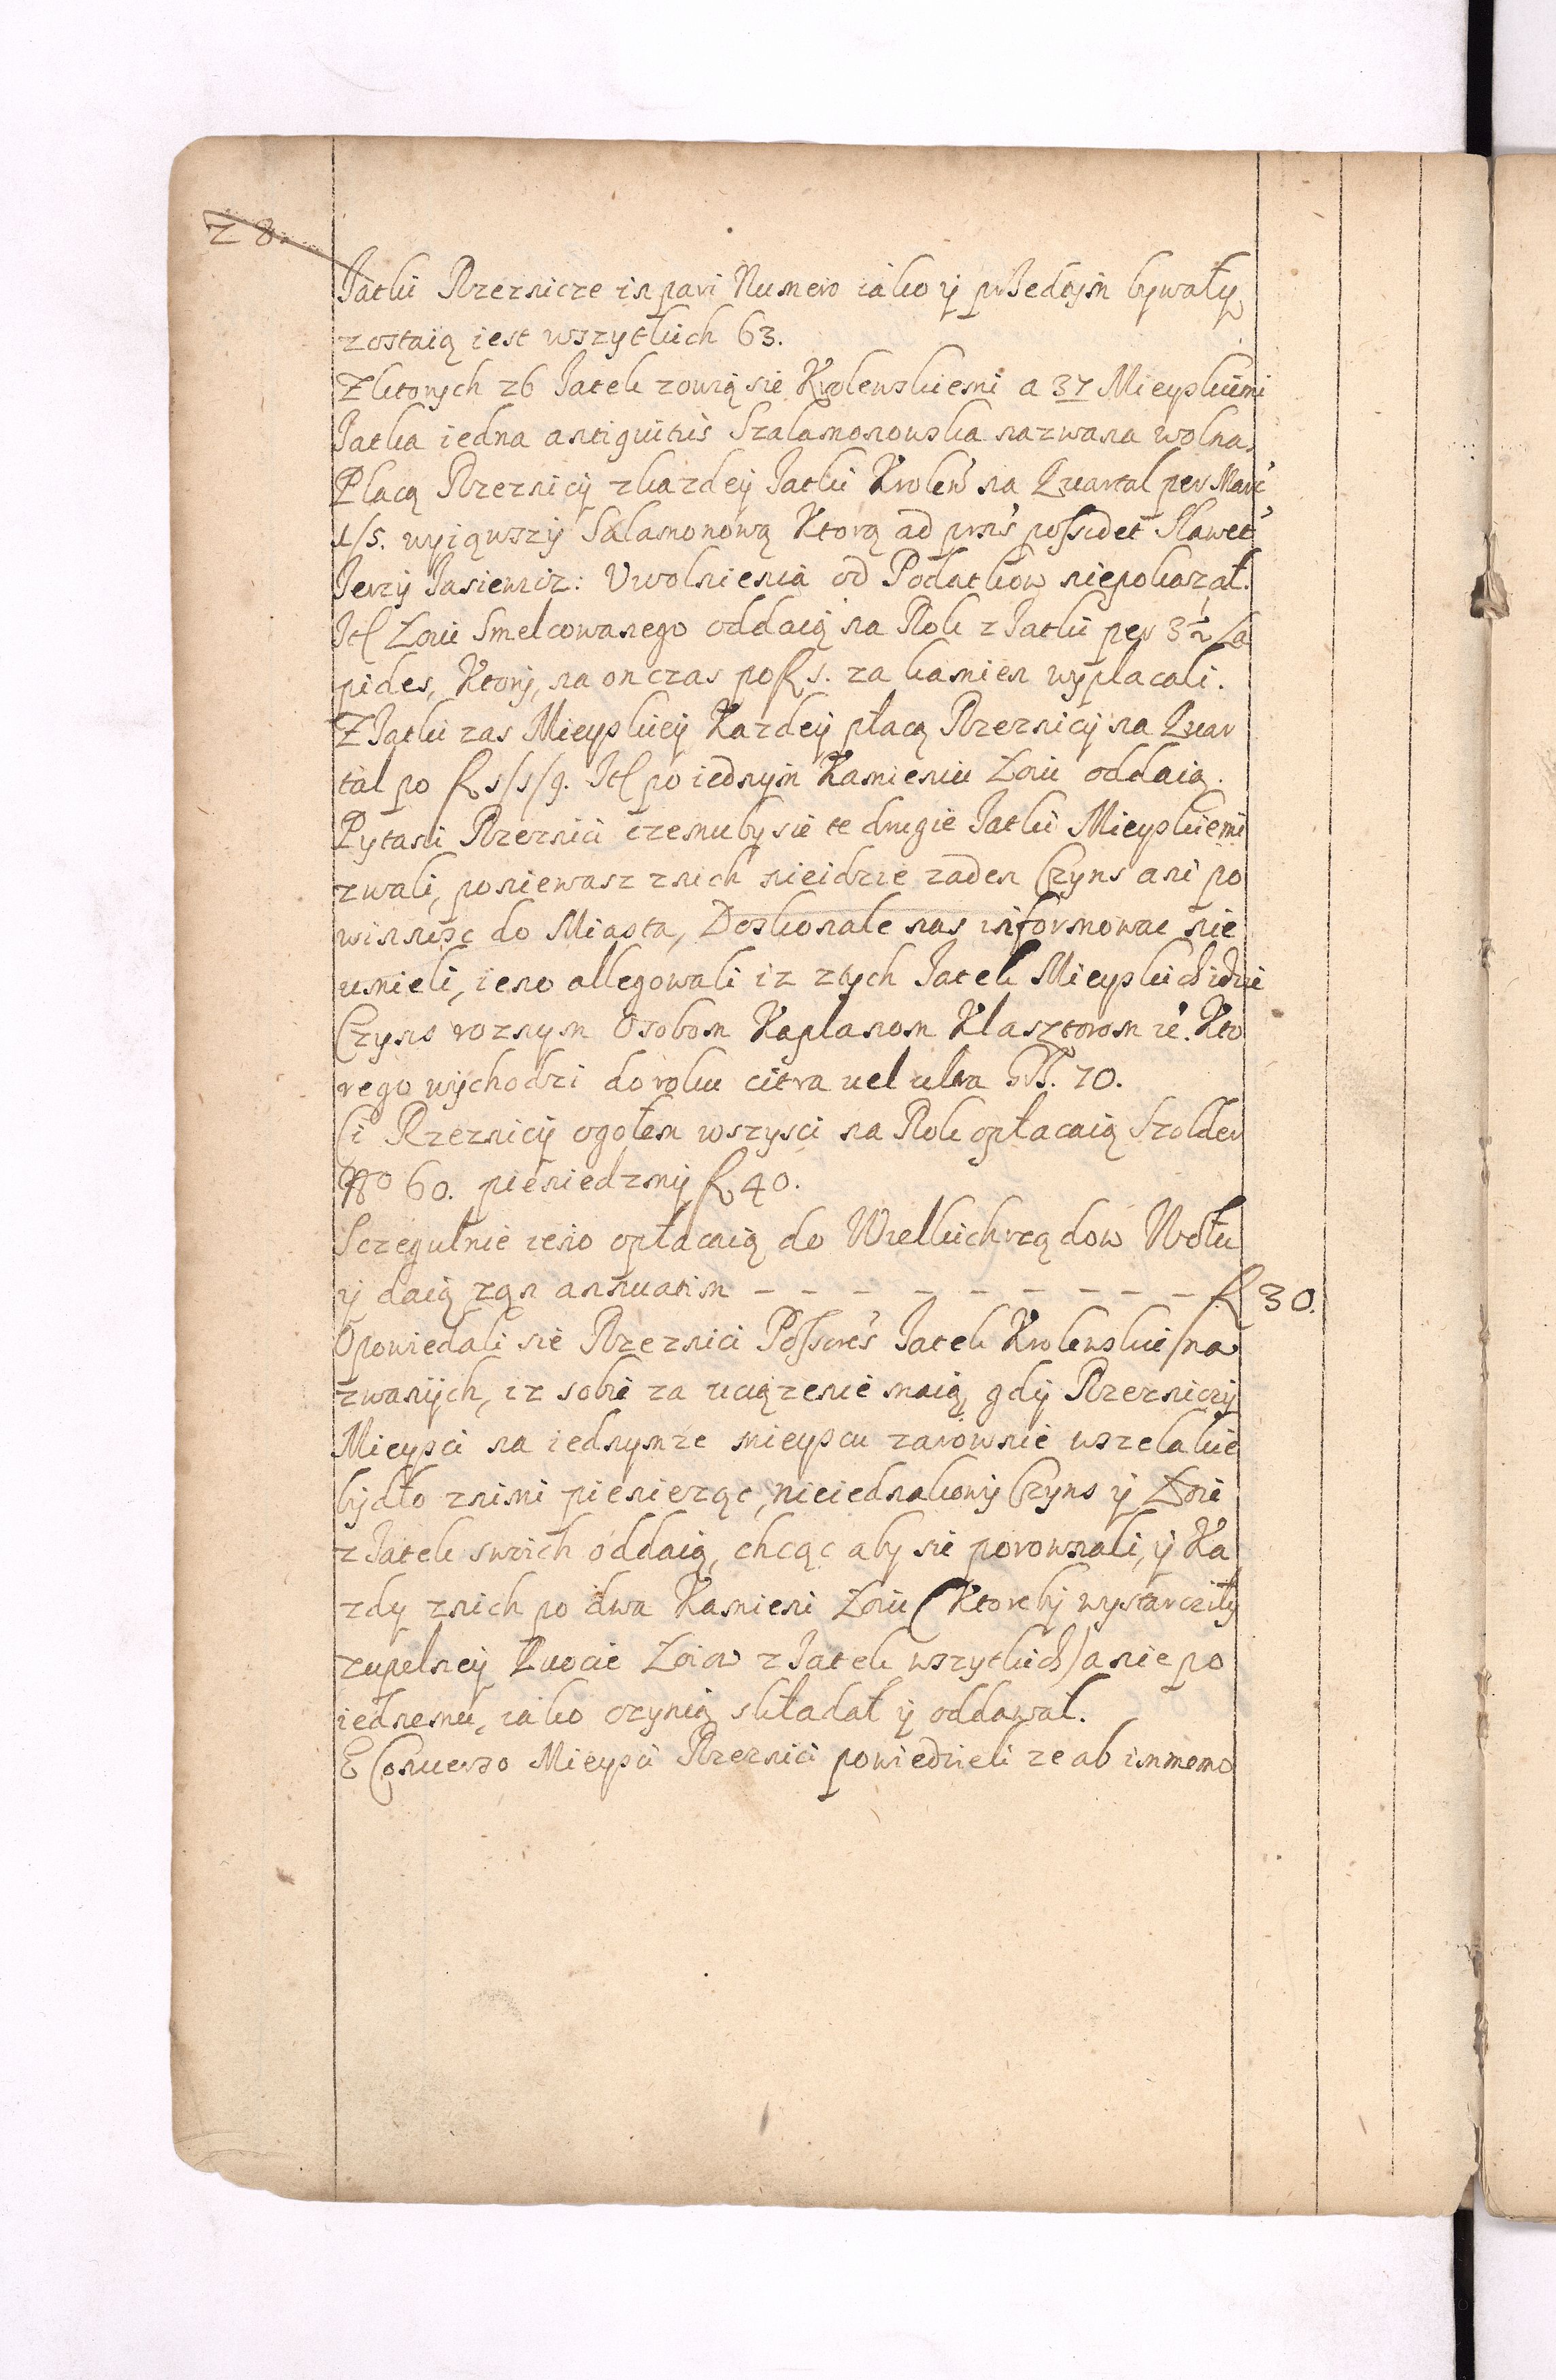 28.
Jatki Rzeznicze in pari Numero iako ÿ przedtÿm bywałÿ
zostaią iest wszytkich 63.
Z ktorÿch 26 Jatek zowią sie Krolewskiemi a 37 Mieyskiemi
Jatka iedna antiquitus Szalamonowska nazwana wolna.
Płacą Rzeznicÿ z kazdeÿ Jatki Krolew na Quartal per Marc
1/5. wyiąwszÿ Salamonową Ktorą ad prns possidet Sławet
Jerzÿ Jasiewicz: Uwolnienia od Podatkow niepokazał.
Itl Łoiu Smelcowanego oddaią na Rok z Jatki per 3½ La
pides, Ktorÿ, na on czas po f 5. za kamien wÿplacali.
Z Jatki zas Mieyskieÿ Kazdeÿ płacą Rzeznicÿ na Quar
tal po f s/s/9. Itl po iednÿm Kamieniu Łoiu oddaią.
Pytani Rzeznici czemuby sie te drugie Jatki Mieyskiemi
zwali, poniewasz znich nieidzie zaden Czyns ani po
winnosc do Miasta, Doskonale nas informowac nie
umieli, ieno allegowali iz z tych Jatek Mieyskich idzie
Czyns roznym Osobom Kaplanom Klasztorom &c. Kto
rego wÿchodzi do roku citra vel ultra 70.
Ci Rzeznicÿ ogołem wszÿsci na Rok opłacaią Szołder
No 60. pieniedzmÿ f 40.
Sczegulnie zesio opłacaią do Wielkichrządow Wołu
ÿ daią zan annuatim – – – – – – – – – – f 30.
Opowiedali sie Rzeznici Possores Jatek Krolewskie/na
zwanÿch, iz sobie za uciązenie maią gdÿ Rzeznicÿ
Mieyscÿ na iednymze mieyscu zarownie wszelakie
bÿdło znimi pienieząc, nieiednakowÿ Czyns ÿ Łoie
z Jatek swoich oddaią, chcąc abÿ sie porownali, ÿ Ka
zdy znich po dwa Kamieni Łoiu (Ktorebÿ wystarczÿłÿ
zupelneÿ Quocie Łoiow z Jatek wszytkich) a nie po
iednemu, iako czynią składał ÿ oddawał.
E Conuerso Mieysci Rzeznici powiedzieli ze ab immemo